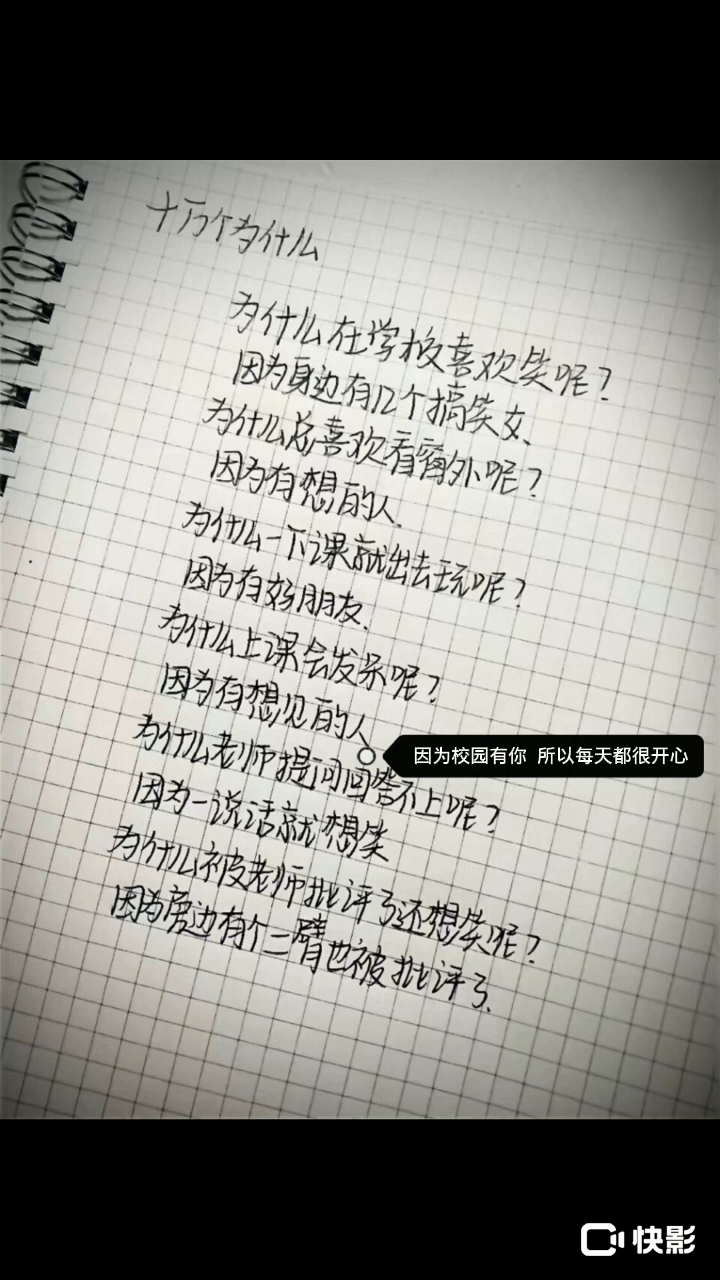 十万个为什么
为什么在学校喜欢笑呢?
因为身边有几个搞笑女、
为什么总喜欢看窗外呢?
因为有想的人.
为什么一下课就出去玩呢?
因为有好朋友.
为什么上课会发呆呢?
因为有想见的人
因为校园有你 所以每天都很开心
为什么老师提问回答不上呢?
因为一说话就想笑
为什么被老师批评了还想笑呢?
因为旁边有个二臂也被批评了.
快影